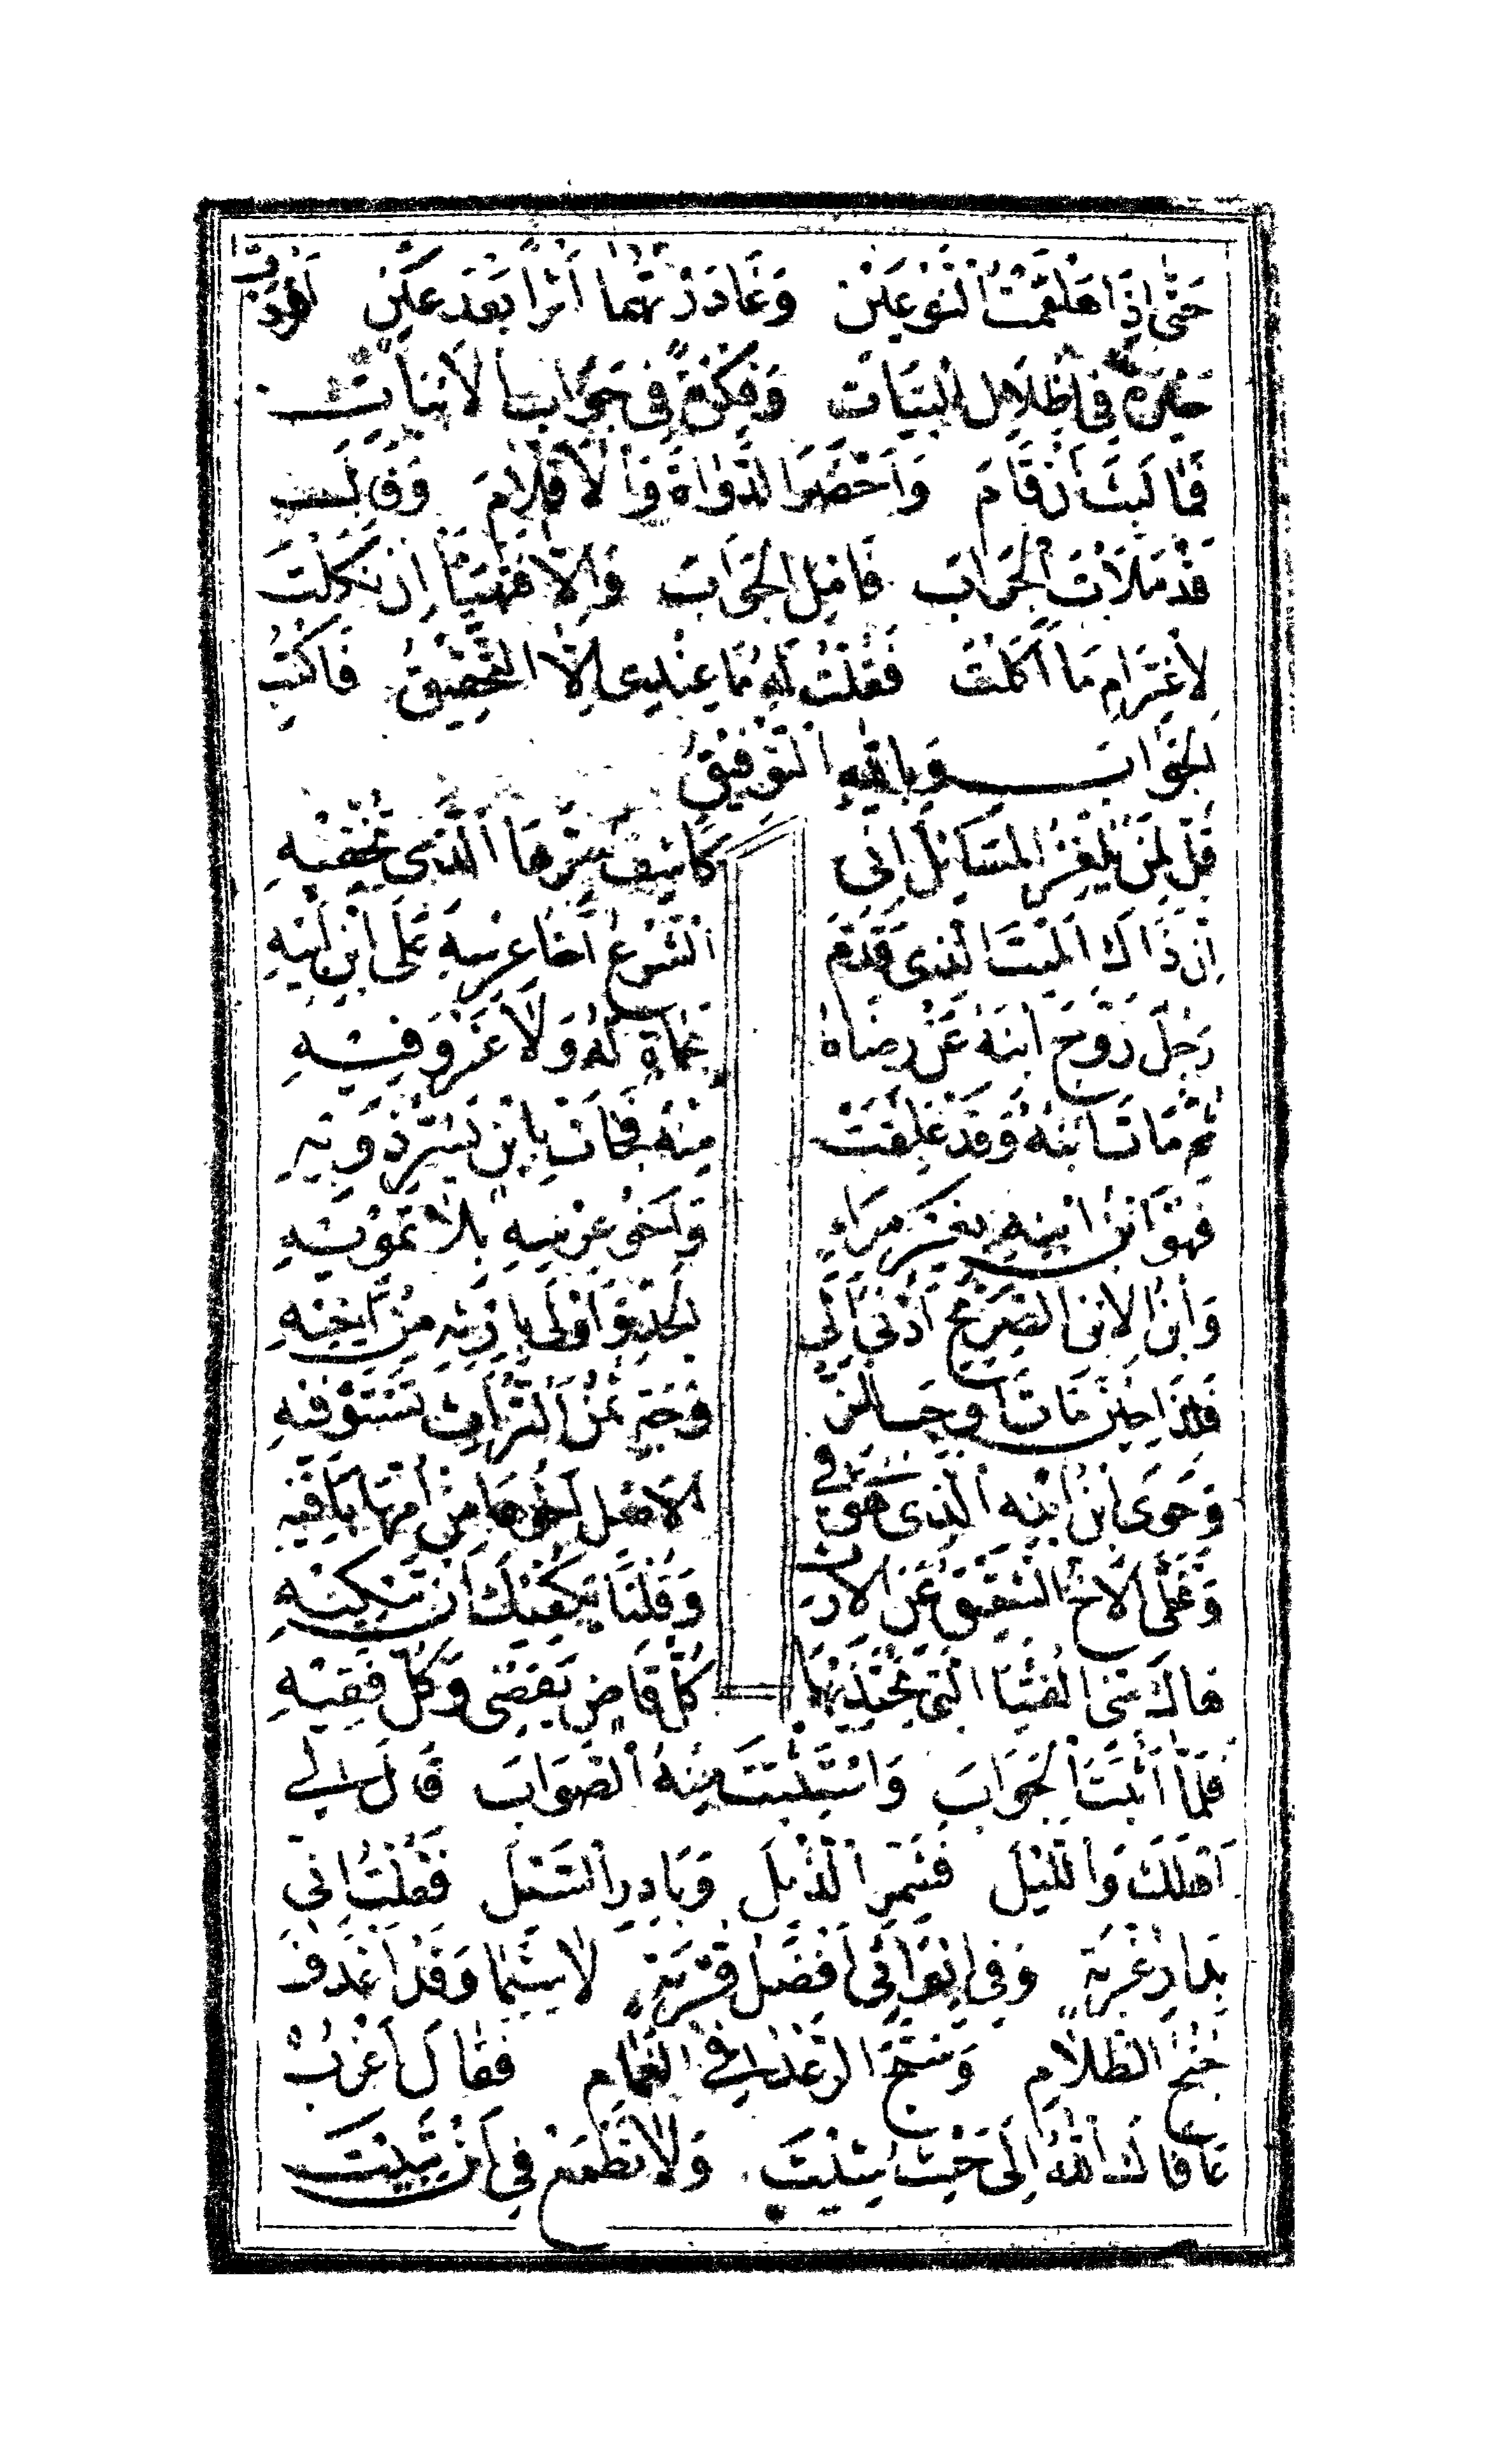 حَتّٰى اِذَا هَلْقَمْتُ النَّوْعَيْنْ وَغَادَرْتُهُمَا اَثَرًا بَعْدَ عَيْنْ اَقْرَدْتُ
حَيْرَةً فِى اِظْلَالِ الْبَيَاتْ وَفِكْرَةً فِى جَوَابِ الْاَبْيَاتْ
فَمَا لَبِثَ اَنْ قَامَ وَاَحْضَرَ الدَّوَاةَ وَالْاَقْلَامَ وَقَالَ
قَدْ مَلَاْتَ الْجِرَابَ فَاَمْلِ الْجَوَابَ وَاِلَّا فَتَهَيَّأْ اِنْ نَكَلْتَ
لِاغْتِرَامِ مَا اَكَلْتَ فَقُلْتُ لَهُ مَا عِنْدِى اِلَّا التَّحْقِيْقُ فَاكْتُبِ
الْجَوَابَ وَبِاللّٰهِ التَّوْفِيْقُ
قُلْ لِمَنْ يُلْغِزُ الْمَسَائِلَ اِنِّى كَاشِفٌ سِرَّهَا الَّذِى تُخْفِيْهِ
اِنَّ ذَاكَ الْمَيْتَ الَّذِى قَدَّمَ الشَّرْعُ اَخَا عِرْسِهِ عَلَى ابْنِ اَبِيْهِ
رَجُلٌ زَوَّجَ ابْنَهُ عَنْ رِضَاهُ بِحَمَاةٍ لَهُ وَلَا غَرْوَ فِيْهِ
ثُمَّ مَاتَ ابْنُهُ وَقَدْ عَلِقَتْ مِنْهُ فَجَاءَتْ بِابْنٍ يَسُرُّ ذَوِيْهِ
فَهُوَ ابْنُ ابْنِهِ بِغَيْرِ مِرَاءٍ وَاَخُو عِرْسِهِ بِلَا تَمْوِيْهِ
وَابْنُ الْاِبْنِ الصَّرِيْحُ اَدْنٰى اِلَى الْجَدِّ وَاَوْلٰى بِاِرْثِهِ مِنْ اَخِيْهِ
فَلِذَا حِيْنَ مَاتَ اُوْجِبَ لِلزَّوْجَةِ ثُمْنُ التُّرَاثِ تَسْتَوْفِيْهِ
وَحَوَى ابْنُ ابْنِهِ الَّذِى هُوَ فِى الْاَصْلِ اَخُوْهَا مِنْ اُمِّهَا بَاقِيْهِ
وَتَخَلَّى الْاَخُ الشَّقِيْقُ عَنِ الْاِرْثِ وَقُلْنَا يَكْفِيْكَ اَنْ تَبْكِيْهِ
هَاكَ مِنِّى الْفُتْيَا الَّتِى يَحْتَذِيْهَا كُلُّ قَاضٍ يَقْضِى وَكُلُّ فَقِيْهِ
فَلَمَّا اَثْبَتَ الْجَوَابَ وَاسْتَثْبَتَ مِنْهُ الصَّوَابَ قَالَ لِى
اَهْلَكَ وَاللَّيْلَ فَشَمِّرِ الذَّيْلَ وَبَادِرِ السَّيْلَ فَقُلْتُ اِنِّى
بِدَارِ غُرْبَةٍ وَفِى اِيْوَائِى اَفْضَلُ قُرْبَةٍ لَا سِيَّمَا وَقَدْ اَغْدَفَ
جُنْحُ الظَّلَامِ وَسَبَّحَ الرَّعْدُ فِى الْغَمَامِ فَقَالَ اغْرُبْ
عَافَاكَ اللّٰهُ اِلَى حَيْثُ شِئْتَ وَلَا تَطْمَعْ فِى اَنْ تَبِيْتَ